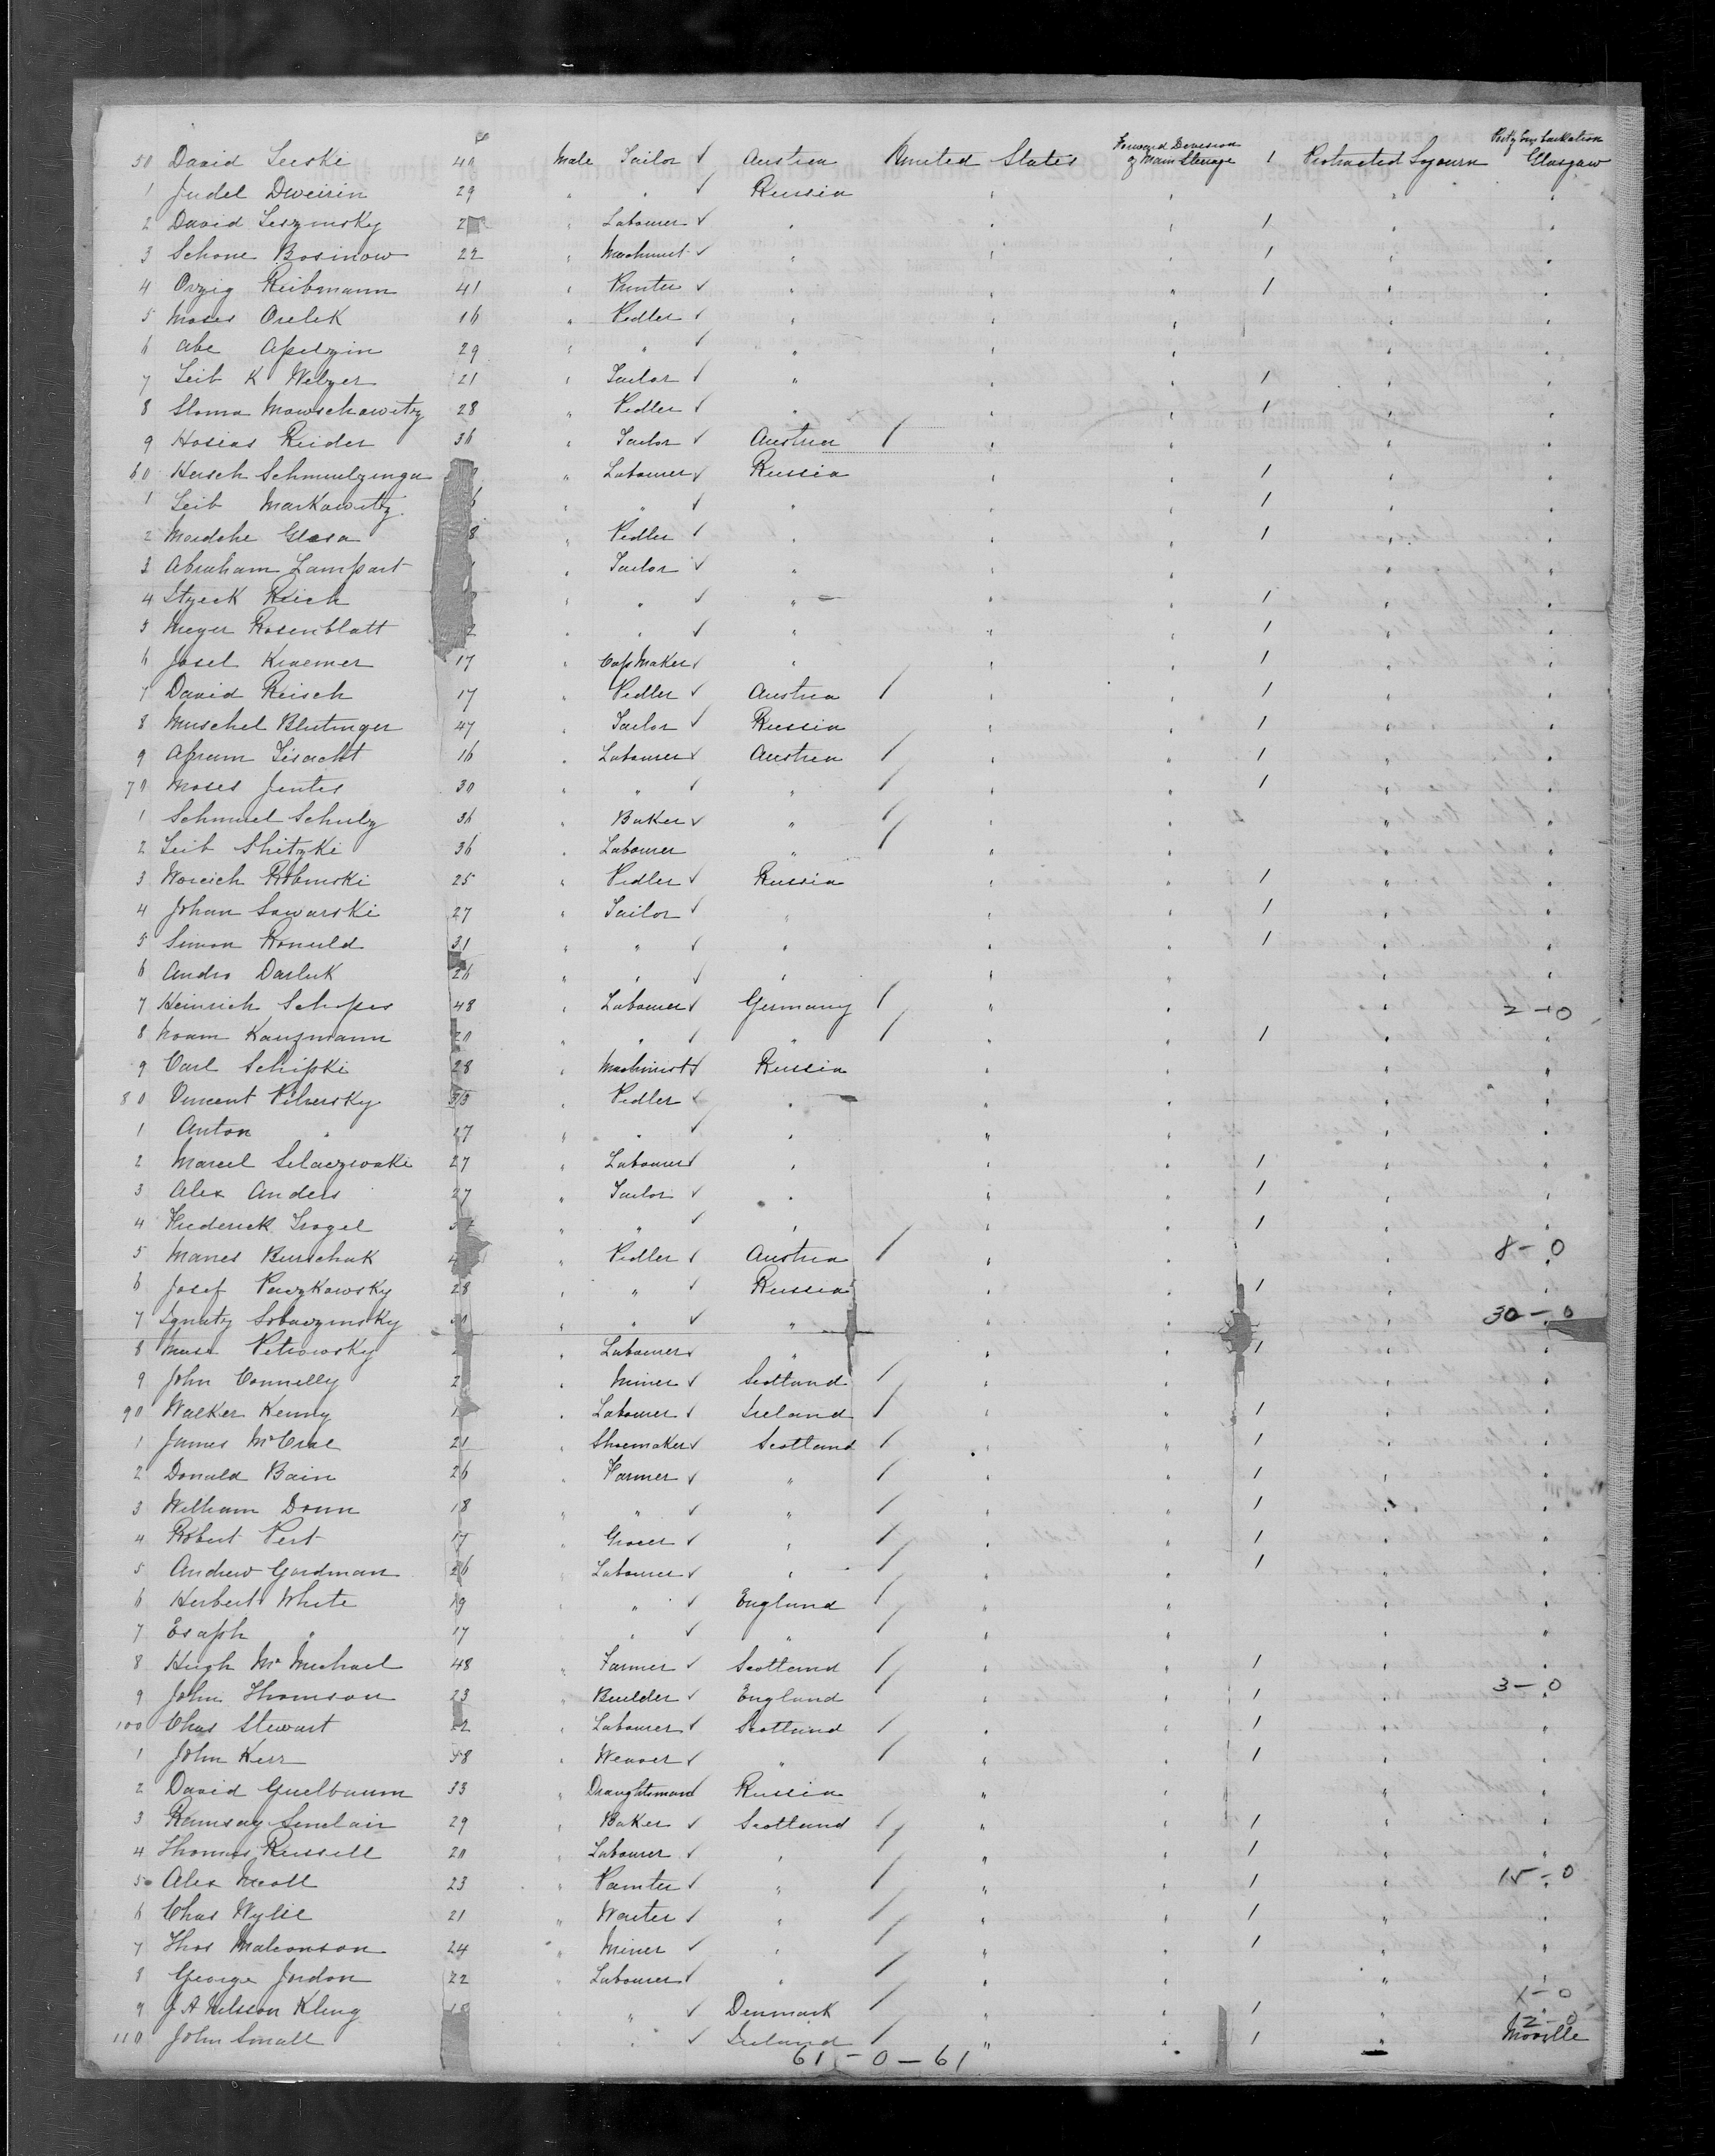 50 David Lerski 40 Male Tailor ✓ Austria United States Forward Division of Main Steerage 1 Protracted Sojourn Port of Embarkation Glasgow
1 Judel Dweirin 29 " " ✓ Russia " " " "
2 David Leszinsky 2 " Labourer ✓ " " " 1 " "
3 Schone Bosinow 22 " Machinist ✓ " " " 1 " "
4 Orzig Reibmann 41 " Printer ✓ " " " 1 " "
5 Moses Orelek 16 " Pedler ✓ " " " " "
6 Abe Apelzin 29 " " ✓ " " " " "
7 Leib K Welzer 21 " Tailor ✓ " " " 1 " "
8 Sloma Mowschowitz 28 " Pedler ✓ " " " 1 " "
9 Hosias Reider 36 " Tailor ✓ Austria / " " " "
60 Hersch " Labourer ✓ Russia " " 1 " "
1 Leib Markowitz 6 " " ✓ " " " 1 " "
2 Mordche Glasa 8 " Pedler ✓ " " " 1 " "
3 Abraham Lampart " Tailor ✓ " " " " "
4 Itzeck Reich " " ✓ " " " 1 " "
5 Meyer Rosenblatt 2 " " ✓ " " " 1 " "
6 Josel Kraemer 17 " Cap Maker ✓ " " " 1 " "
7 David Reisch 17 " Pedler ✓ Austria / " " 1 " "
8 Muschel Blutinger 47 " Tailor ✓ Russia " " 1 " "
9 Afraim Lisacht 16 " Labourer ✓ Austria / " " 1 " "
70 Moses Jentes 30 " " ✓ " / " " 1 " "
1 Schmuel Schulz 36 " Baker ✓ " / " " " "
2 Leib Shitzki 36 " Labourer " / " " " "
3 Worcich Robinski 25 " Pedler ✓ Russia " " 1 " "
4 Johan Sawarski 27 " Tailor ✓ " " " 1 " "
5 Simon Ronuld 31 " " ✓ " " " 1 " "
6 Andro Darluk 26 " " ✓ " " " " "
7 Heinrich Schaper 48 " Labourer ✓ Germany / " " " 2-0
8 Noam Kauzmann 20 " " ✓ " / " " 1 " "
9 Carl Schipki 28 " Machinist ✓ Russia " " " "
80 Vincent Pilversky 33 " Pedler ✓ " " " " "
1 Anton " 27 " " ✓ " " " " "
2 Marcel Silaczwoski 27 " Labourer ✓ " " " 1 " "
3 Alex Anders 27 " Tailor ✓ " " " 1 " "
4 Frederick Trogel 3 " " ✓ " " " 1 " "
5 Manes Burschuk 4 " Pedler ✓ Austria / " " " 8-0
6 Josef Paczkowsky 28 " " ✓ Russia " " 1 " "
7 Ignatz Sobaczinsky " " ✓ " " " " 30-0
8 Petrowsky " Labourer ✓ " " " 1 " "
9 John Connelly 2 " Miner ✓ Scotland / " " " "
90 Walker Kenny " Labourer ✓ Ireland / " " 1 " "
1 James McCrae 21 " Shoemaker ✓ Scotland / " " 1 " "
2 Donald Bain 26 " Farmer ✓ " / " " 1 " "
3 William Dunn 18 " " ✓ " / " " 1 " "
4 Robert Pert 17 " Grocer ✓ " / " " 1 " "
5 Andrew Gordman 26 " Labourer ✓ " / " " 1 " "
6 Herbert White 19 " " ✓ England / " " " "
7 Esaph " 17 " " ✓ " / " " " "
8 Hugh McMichael 48 " Farmer ✓ Scotland / " " 1 " "
9 John Thomson 23 " Builder ✓ England / " " 1 " 3-0
100 Chas Stewart 22 " Labourer ✓ Scotland / " " 1 " "
1 John Kerr 38 " Weaver ✓ " / " " 1 " "
2 David Guelbaum 33 " Draughtsman ✓ Russia " " " "
3 Ramsay Sinclair 29 " Baker ✓ Scotland / " " 1 " "
4 Thomas Russell 20 " Labourer ✓ " / " " 1 " "
5 Alex Nicoll 23 " Painter ✓ " / " " 1 " 15-0
6 Chas Wylie 21 " Waiter ✓ " / " " 1 " "
7 Thos Malconson 24 " Miner ✓ " / " " 1 " "
8 George Jordon 22 " Labourer ✓ " / " " " "
9 J A Nilsson Kling 18 " " ✓ Denmark / " " 1 " 1-0
12-0
110 John Small " " ✓ Ireland / " " 1 " Moville
61-0-61